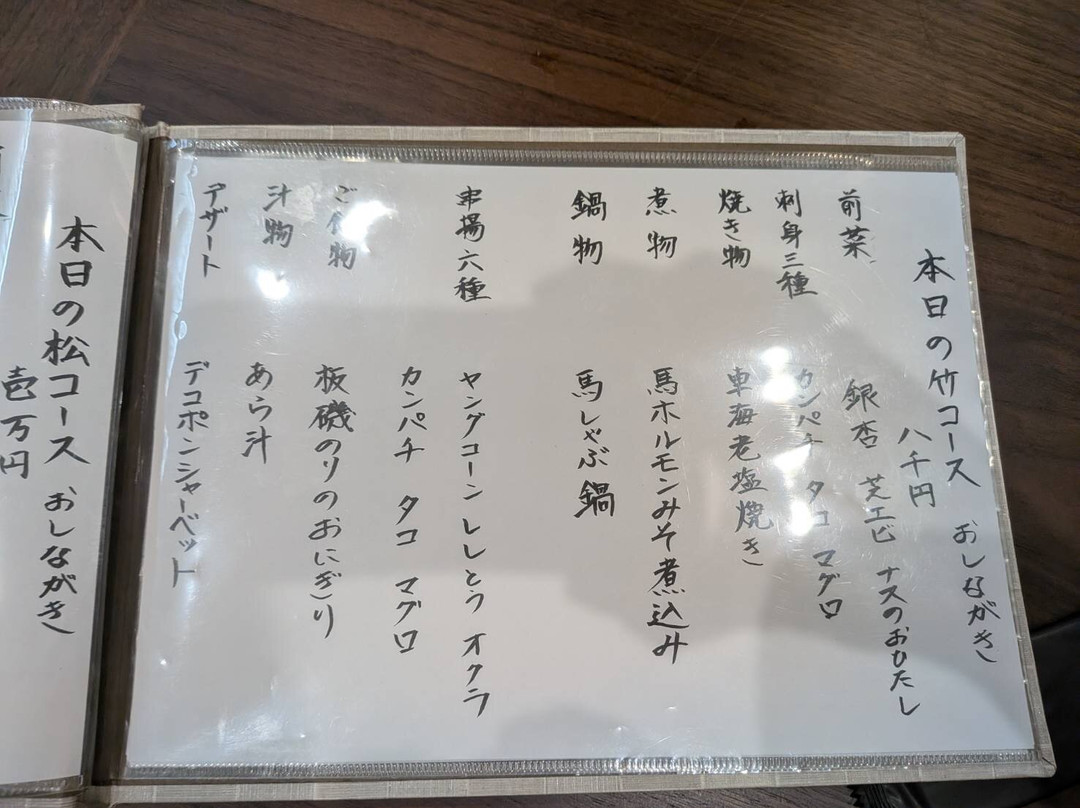 本日の竹コース おしながき
八千円
前菜 銀杏 芝エビ ナスのおひたし
刺身三種 カンパチ タコ マグロ
焼き物 車海老塩焼き
煮物 馬ホルモンみそ煮込み
鍋物 馬しゃぶ鍋
串揚六種 ヤングコーン ししとう オクラ
カンパチ タコ マグロ
ご飯物 板磯のりのおにぎり
汁物 あら汁
デザート デコポンシャーベット
本日の松コース おしながき
壱万円